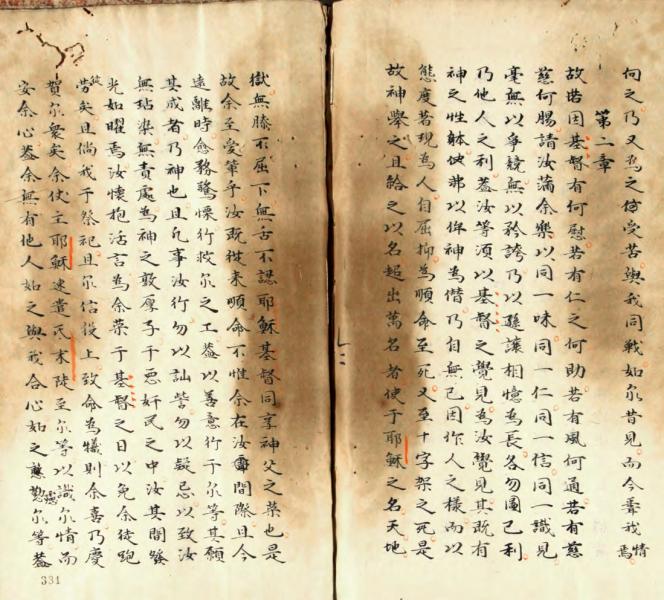 向之乃又為之仿受苦與我同戰如尔昔見而今聞我情焉
第二章
故諾因基督有何慰若有仁之何助若有風何通若有慈
慈何賜請汝滿余樂以同一味同一仁同一信同一識見
毫無以爭競無以矜誇乃以遜讓相憶為長各勿圖己利
乃他人之利蓋汝等須以基督之覺見為汝覺見其既有
神之性體使弗以侔神為僭乃自無己因作人之樣而以
態度著現為人自屈抑為順命至死又至十字架之死是
故神舉之且給之以名超出萬名者使于耶穌之名天地
獄無膝不屈下無舌不認耶穌基督同享神父之榮也是
故余至愛輩乎汝既從来順命不惟余在汝間際且今
遠離時愈務驚懷行救尔之工蓋以善意行于尔等其願
其成者乃神也且凡事汝行勿以訕訾勿以疑忌以致汝
無玷染無責處為神之敦厚子于惡奸民之中汝其間發
光如曜焉汝懷抱活言為余榮于基督之日以免余徒跑
徒勞矣且倘我于祭祀且尔信役上致命為犧則余喜乃慶
賀尔眾矣余使主耶穌速遣氏末陡至尔等以識尔情而
安余心蓋余無有他人如之與我合心如之慇懃慮尔等蓋
331